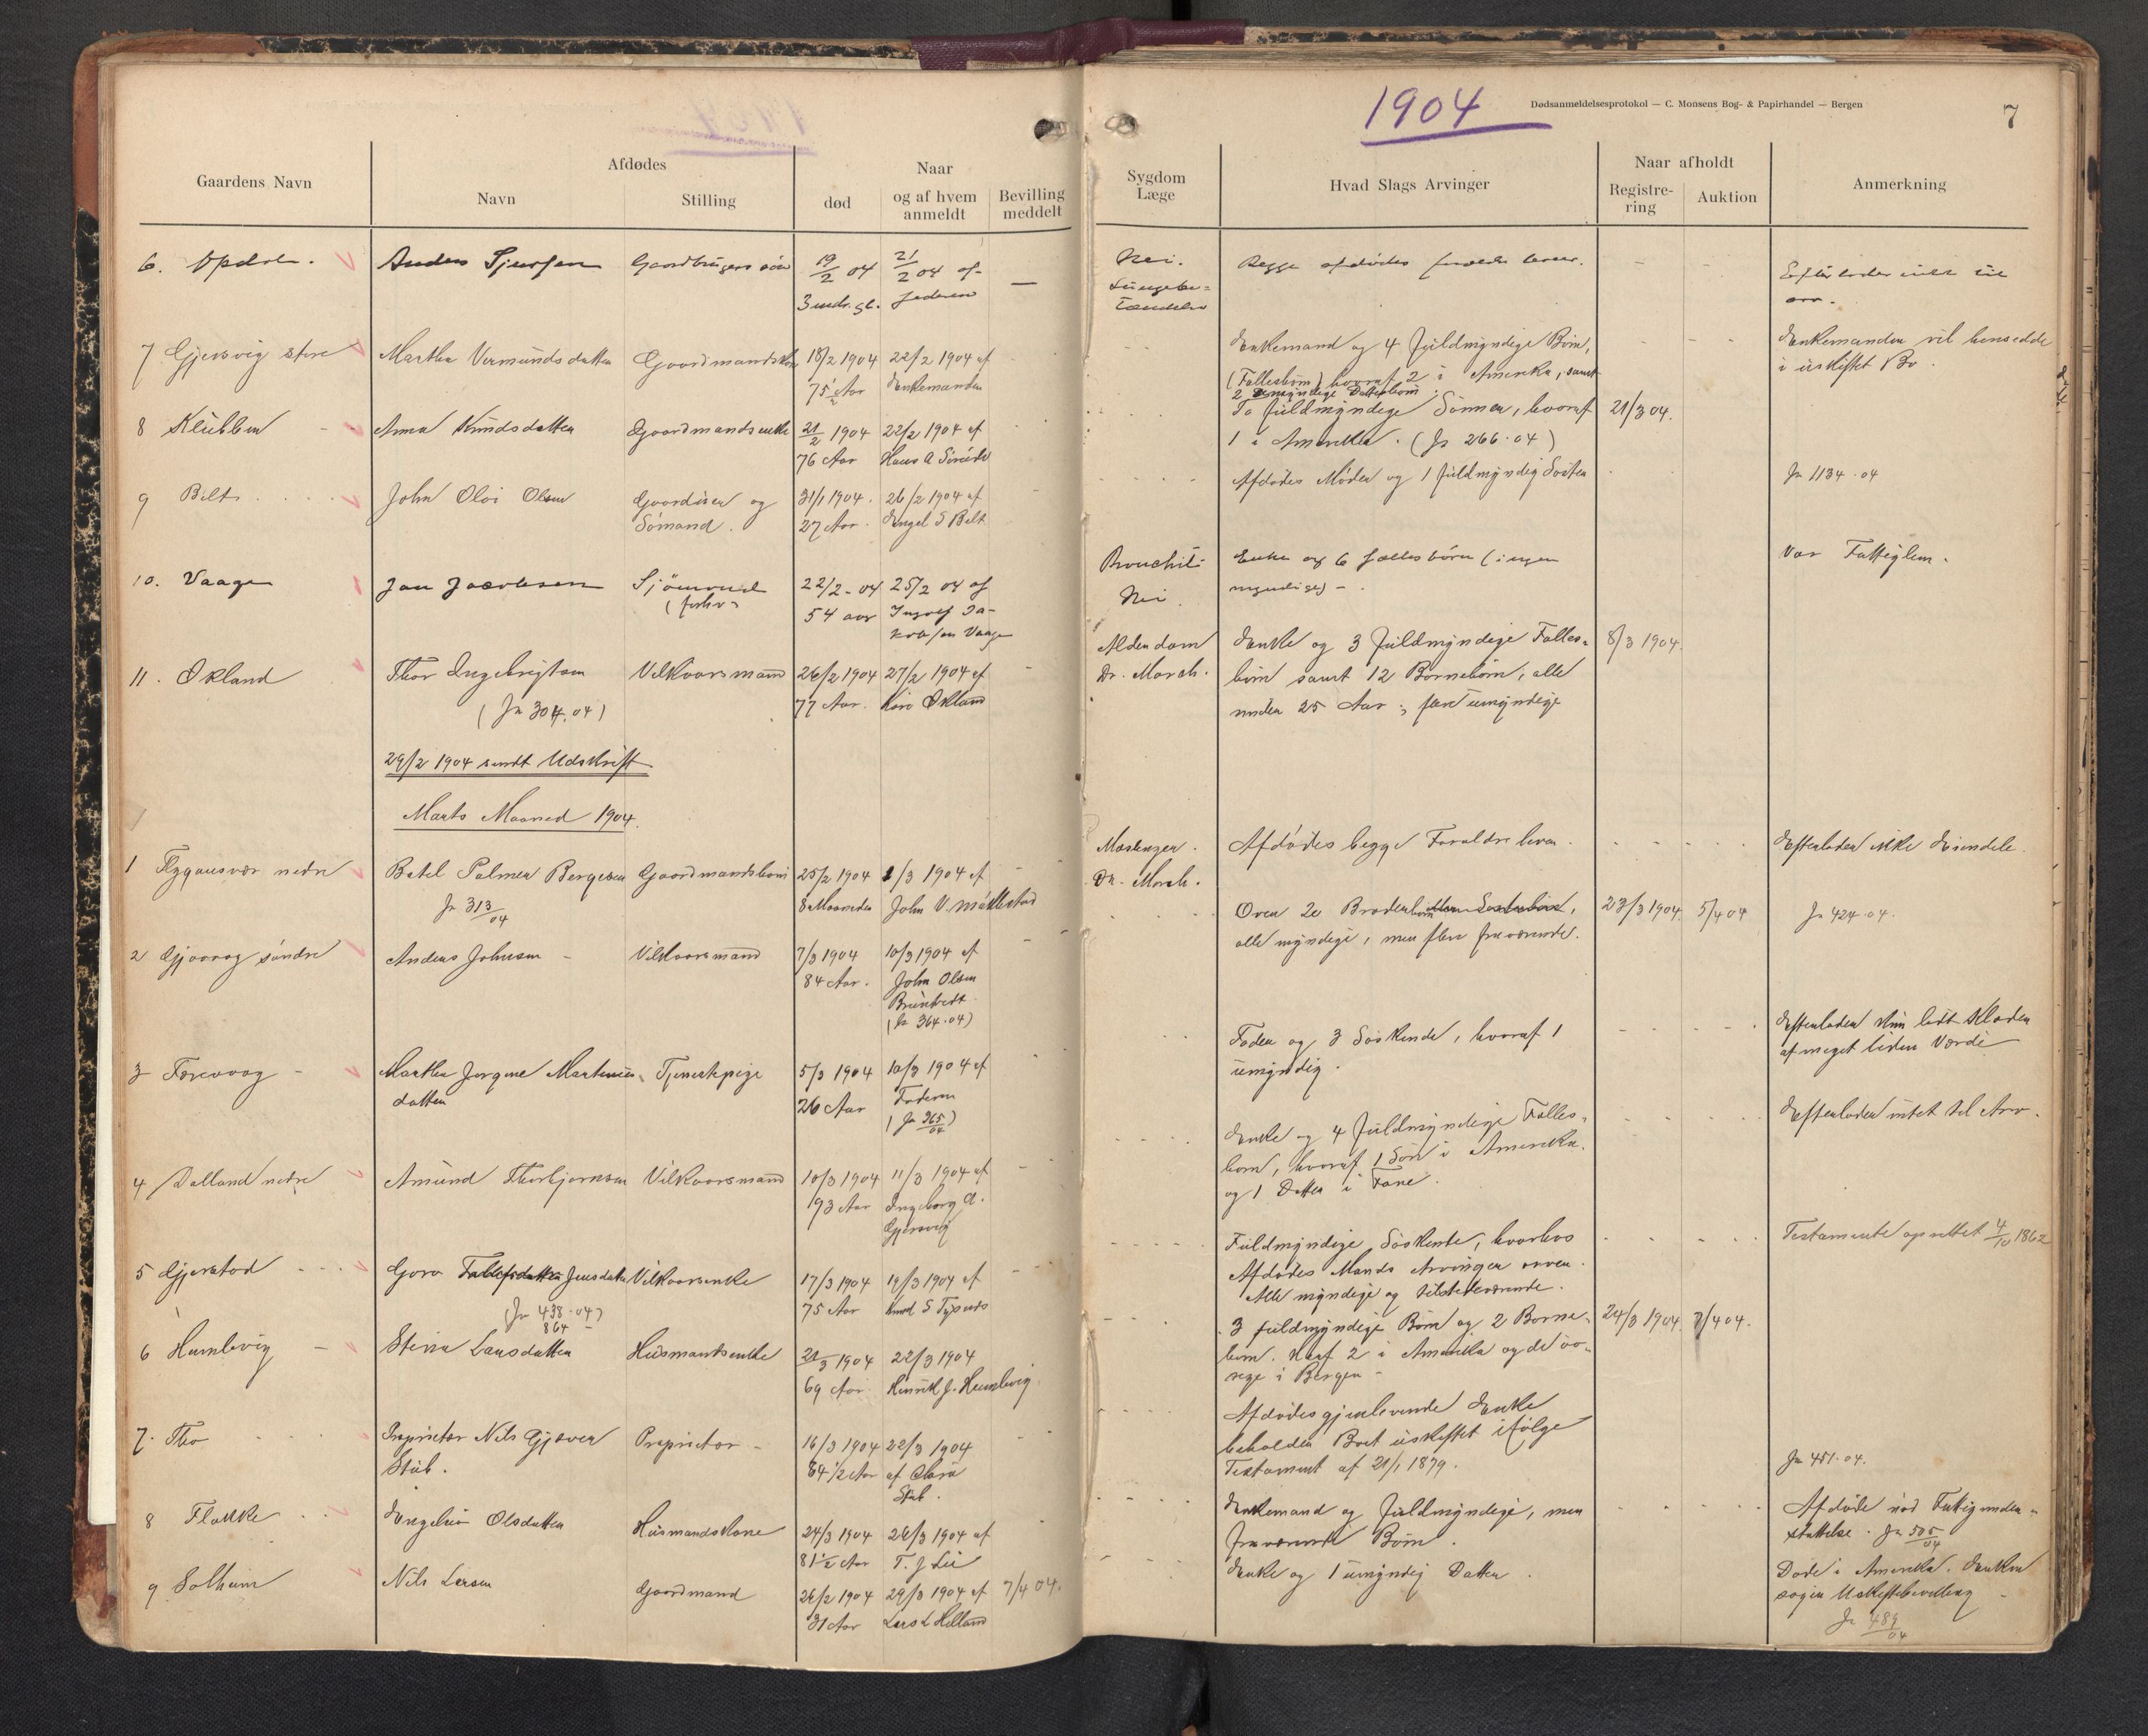 1904
Dødsanmeldelsesprotokol — C. Monsens Bog- & Papirhandel — Bergen
7
Gaardens Navn
Afdødes
Navn
Stilling
Naar
død
og af hvem anmeldt
Bevilling meddelt
Sygdom
Læge
Hvad Slags Arvinger
Naar afholdt
Registrering
Auktion
Anmerkning
6. Opdal. Anders Sjursen Gaardbrugers søn 19/2 04 21/2 04 af — Nei. Begge afdødes forældre lever. - - Efterlader intet til
3 mdr. gl. faderen Lungebe=
tændelse arv.
7 Gjersvig store Martha Vermundsdatter Gaardmandskone 18/2 1904 22/2 1904 af Enkemand og 4 fuldmyndige Børn, Enkemanden vil hensidde
75½ Aar Enkemanden (Fællesbørn) hvoraf 2 i Amerika, samt i uskiftet Bo.
2 umyndige Datterbørn
8 Klubben Anna Knudsdatter Gaardmandsenke 21/2 1904 22/2 1904 af To fuldmyndige Sønner, hvoraf 21/3 04.
76 Aar Hans A 1 i Amerika. (Jr 266.04)
9 Belt John Oloi Olsen Gaardeier og 31/1 1904. 26/2 1904 af Afdødes Moder og 1 fuldmyndig Søster Jr 1134.04
Sømand. 27 Aar. Engel S Belt
10. Vaage Jan Jacobsen Sjømand 22/2-04 25/2 04 af Bronchit Enke og 6 fællesbørn (ingen Var Fattiglem.
54 aar Ja-
kobsen Vaage Nei. myndige) -
11. Økland Thor Ingebrigtsen Vilkaarsmand 26/2 1904 27/2 1904 af Alderdom Enke og 3 fuldmyndige Fælles= 8/3 1904.
(Jr 304.04) 77 Aar. Økland Dr. Morch. børn samt 12 Børnebørn, alle
under 25 Aar; flere umyndige
29/2 1904 sendt Udskrift
Marts Maaned 1904.
1 Flygansvær nedre Botel Palmer Bergesen Gaardmandsbarn 25/2 1904 1/3 1904 af Mæslinger. Afdødes begge Forældre lever. Efterlader ikke Eiendele.
Jr 313/04 8 Maaneder John V. Dr. Morch.
2 Gjøvaag søndre Anders Johnsen Vilkaarsmand 7/3 1904 10/3 1904 af Over 20 Broderbørn, 23/3 1904. 5/4 04 Jr 424.04.
84 Aar. John Olsen alle myndige, men flere fraværende.
(Jr 364.04)
3 Færevaag Martha Jorgine Martinus- Tjenestepige 5/3 1904 10/3 1904 af Fader og 3 Søskende, hvoraf 1 Efterlader kun lidt Klæder
datter 26 Aar Faderen umyndig. af meget liden Værdi
(Jr 365/04)
4 Dalland nedre Amund Thorbjørnsen Vilkaarsmand 10/3 1904 11/3 1904 af Enke og 4 fuldmyndige Fælles= Efterlader intet til Arv.
93 Aar Ingeborg A. børn, hvoraf 1 Søn i Amerika.
Gjersvig og 1 Datter i Fane.
5 Gjerstad Goro Jensdatter Vilkaarsenke 17/3 1904 19/3 1904 af Fuldmyndige Søskende, hvorhos Testamente oprettet 4/10 1862
(Jr 438.04) 75 Aar Knud S Afdødes Mands Arvinger arver.
864 Alle myndige og tilstedeværende.
6 Humlevig Larsdatter Husmandsenke 21/3 1904 22/3 1904 3 fuldmyndige Børn og 2 Børne= 24/3 1904. 7/4 04.
69 Aar. Henrik J. Humlevig børn. Heraf 2 i Amerika og de øv=
rige i Bergen -
7. Tho Proprietær Nils Gjøver Proprietær - 16/3 1904 22/3 1904 Afdødes gjenlevende Enke
Stub. 84½ Aar af Clara beholder Boet uskiftet ifølge
Stub. Testament af 21/1 1879. Jr 451.04.
8 Flakke Engelin Olsdatter Husmandskone 24/3 1904 26/3 1904 af Enkemand og fuldmyndige, men Afdøde nød Fattigunder=
81½ Aar T. J Lie fraværende Børn. støttelse. Jr 505/04
9 Solheim Nils Larsen Gaardmand 26/2 1904 29/3 1904 af 7/4 04. Enke og 1 umyndig Datter. Døde i Amerika. Enken
31 Aar Lars L Helland søger Uskiftebevilling -
Jr 489/04